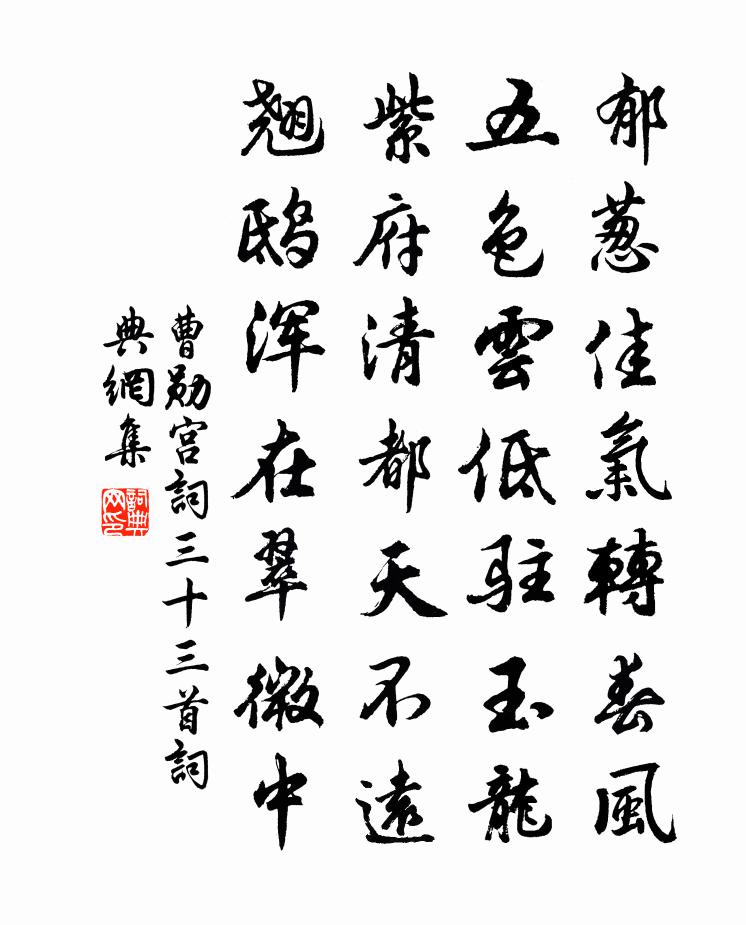 郁葱佳氣轉春風
五色雲低駐玉龍
紫府清都天不遠
翹鸱浑在翠微中
曹勋宮詞三十三首詞
典網集
詞典网印